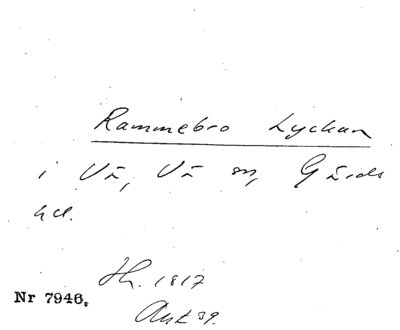 Rammebro Lyckan
i Vä, Vä sn, Gärds
hd.
Hh. 1817
Nr 7946.
Akt 39.